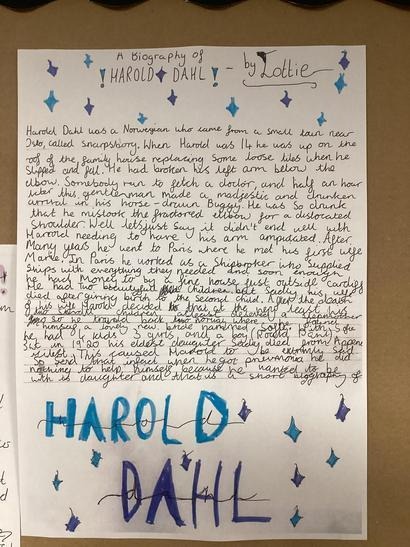 A Biography of
! HAROLD DAHL ! - by Lottie
Harold Dahl was a Norwegian who came from a small town near
Oslo, called Sarpsborg. When Harold was 14 he was up on the
roof of the family house replacing some loose tiles when he
slipped and fell. He had broken his left arm below the
elbow. Somebody run to fetch a doctor, and half an hour
later this gentleman made a madjestic and drunken
arrival in his horse-drawn Buggy. He was So drunk
that he mistook the fractored elbow for a dislocated
shoulder. Well lets just say it didn't end well with
Harold needing to have is arm ampudated. After
Many years he went to Paris where he met his first wife
Marie. In Paris he worked as a Shipbroker who supplied
ships with everything they needed and soon enough
he had Money to by a fine house just outside Cardiff
He had two beautiful children but Sadly his wife
died after giving birth to the second child. After the death
of his wife Harold decided that at the least
two children
so he travled back to norway where he
himself a lovely new bride named Sofie. With Sofie
he had 4 kids 3 girls and a boy (Roald Dahl).
in 1920 his eldest daughter died from
This caused Harold to be extremly sad
So sad that infact when he got pneumonia he did
nothing to help himself because he wanted to be
with is daughter and that us a short biography of
HAROLD
DAHL